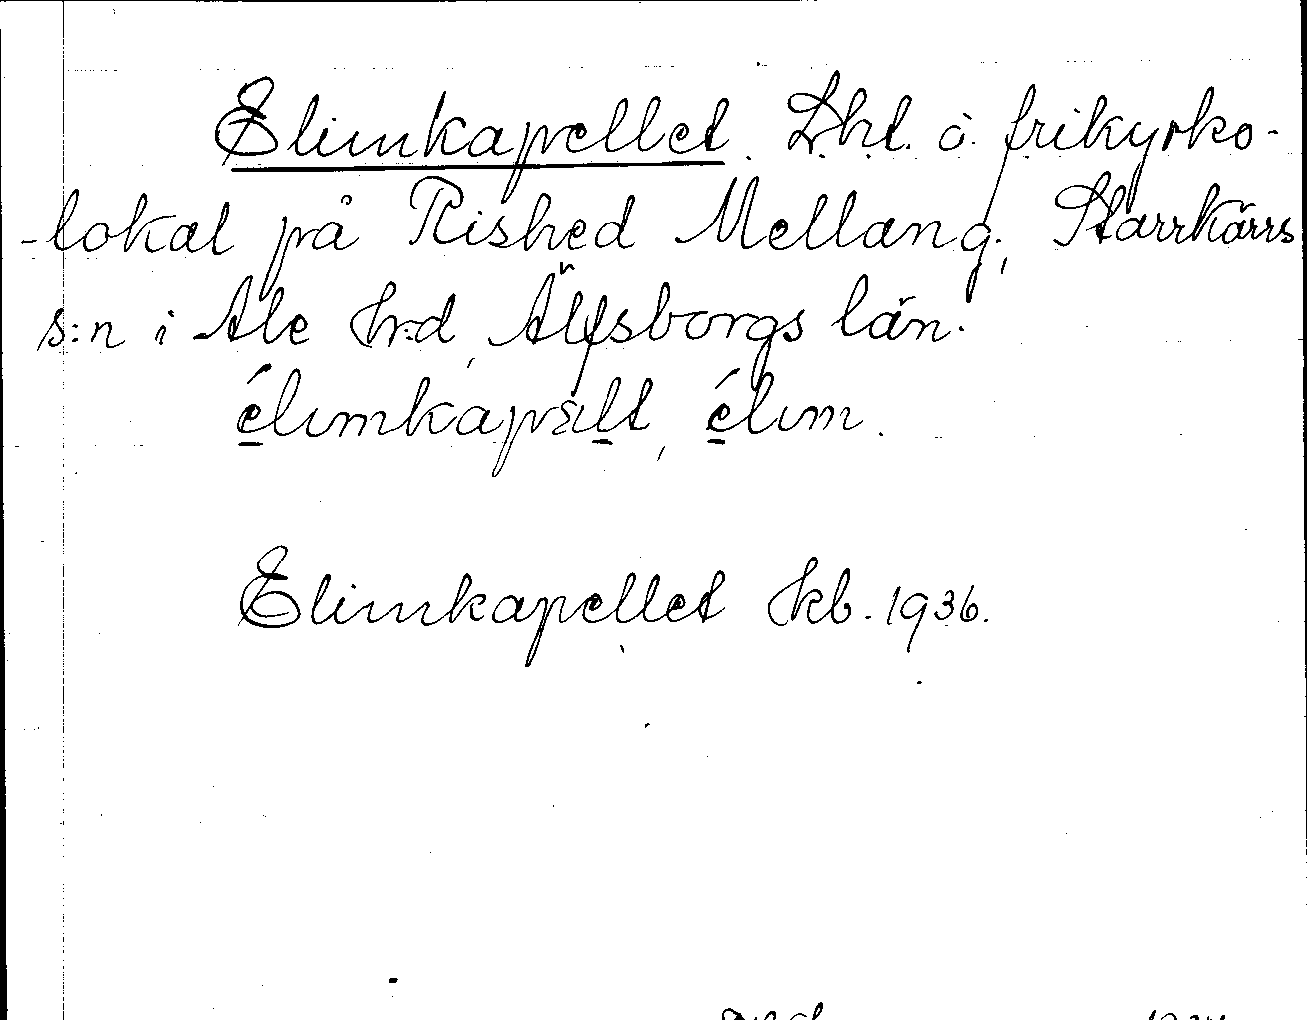 Elimkapellet. Lht. å frikyrko-
-lokal på Rished Mellang., Starrkärrs
s:n i Ale hrd, Älfsborgs län.
élimkapält, élim.
Elimkapellet Hkb. 1936.